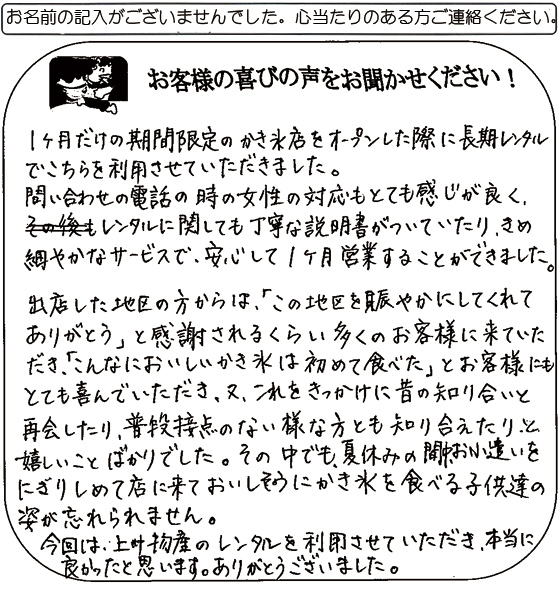 お名前の記入がございませんでした。心当たりのある方ご連絡ください。
お客様の喜びの声をお聞かせください！
1ヶ月だけの期間限定のかき氷店をオープンした際に長期レンタル
でこちらを利用させていただきました。
問い合わせの電話の時の女性の対応もとても感じが良く、
その後もレンタルに関しても丁寧な説明書がついていたり、きめ
細やかなサービスで、安心して1ヶ月営業することができました。
出店した地区の方からは、「この地区を賑やかにしてくれて
ありがとう」と感謝されるくらい多くのお客様に来ていた
だき、「こんなにおいしいかき氷は初めて食べた」とお客様にも
とても喜んでいただき、又、これをきっかけに昔の知り合いと
再会したり、普段接点のない様な方とも知り合えたり、と
嬉しいことばかりでした。その中でも、夏休みの間、お小遣いを
にぎりしめて店に来ておいしそうにかき氷を食べる子供達の
姿が忘れられません。
今回は、上叶物産のレンタルを利用させていただき、本当に
良かったと思います。ありがとうございました。